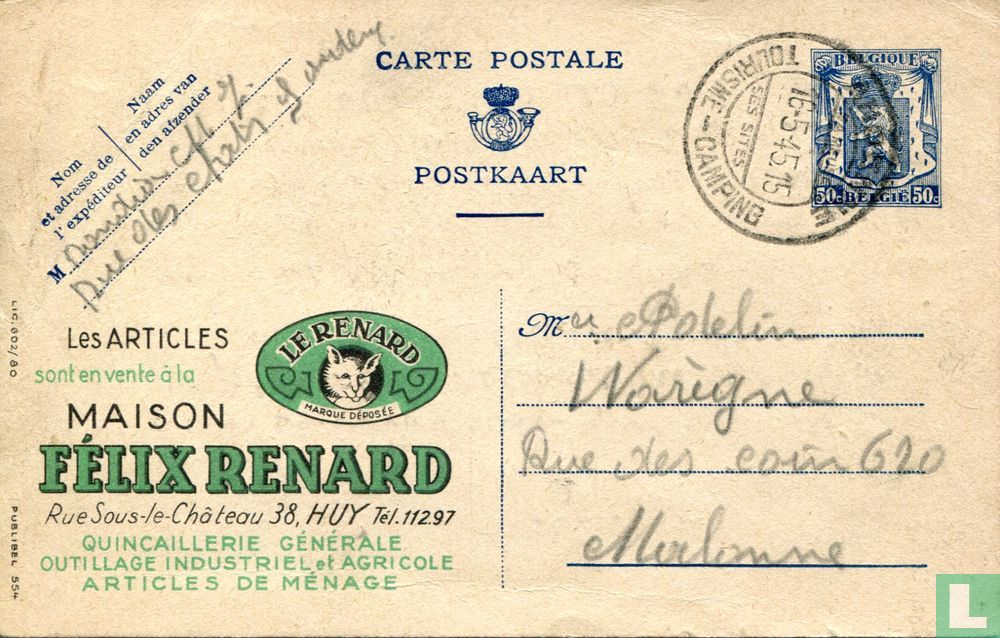 CARTE POSTALE
POSTKAART
Nom
et adresse de
l'expéditeur
Naam
en adres van
den afzender
M
Rue des
BELGIQUE
50c BELGIË 50c
TOURISME - CAMPING
SES SITES
16-5-45.15
Les ARTICLES
sont en vente à la
MAISON
FÉLIX RENARD
LE RENARD
MARQUE DÉPOSÉE
Rue Sous-le-Château 38, HUY Tél. 112.97
QUINCAILLERIE GÉNÉRALE
OUTILLAGE INDUSTRIEL et AGRICOLE
ARTICLES DE MÉNAGE
LIC. 602/80
PUBLIBEL 554
M Adelin
Warègne
Rue des 620
Malonne
L